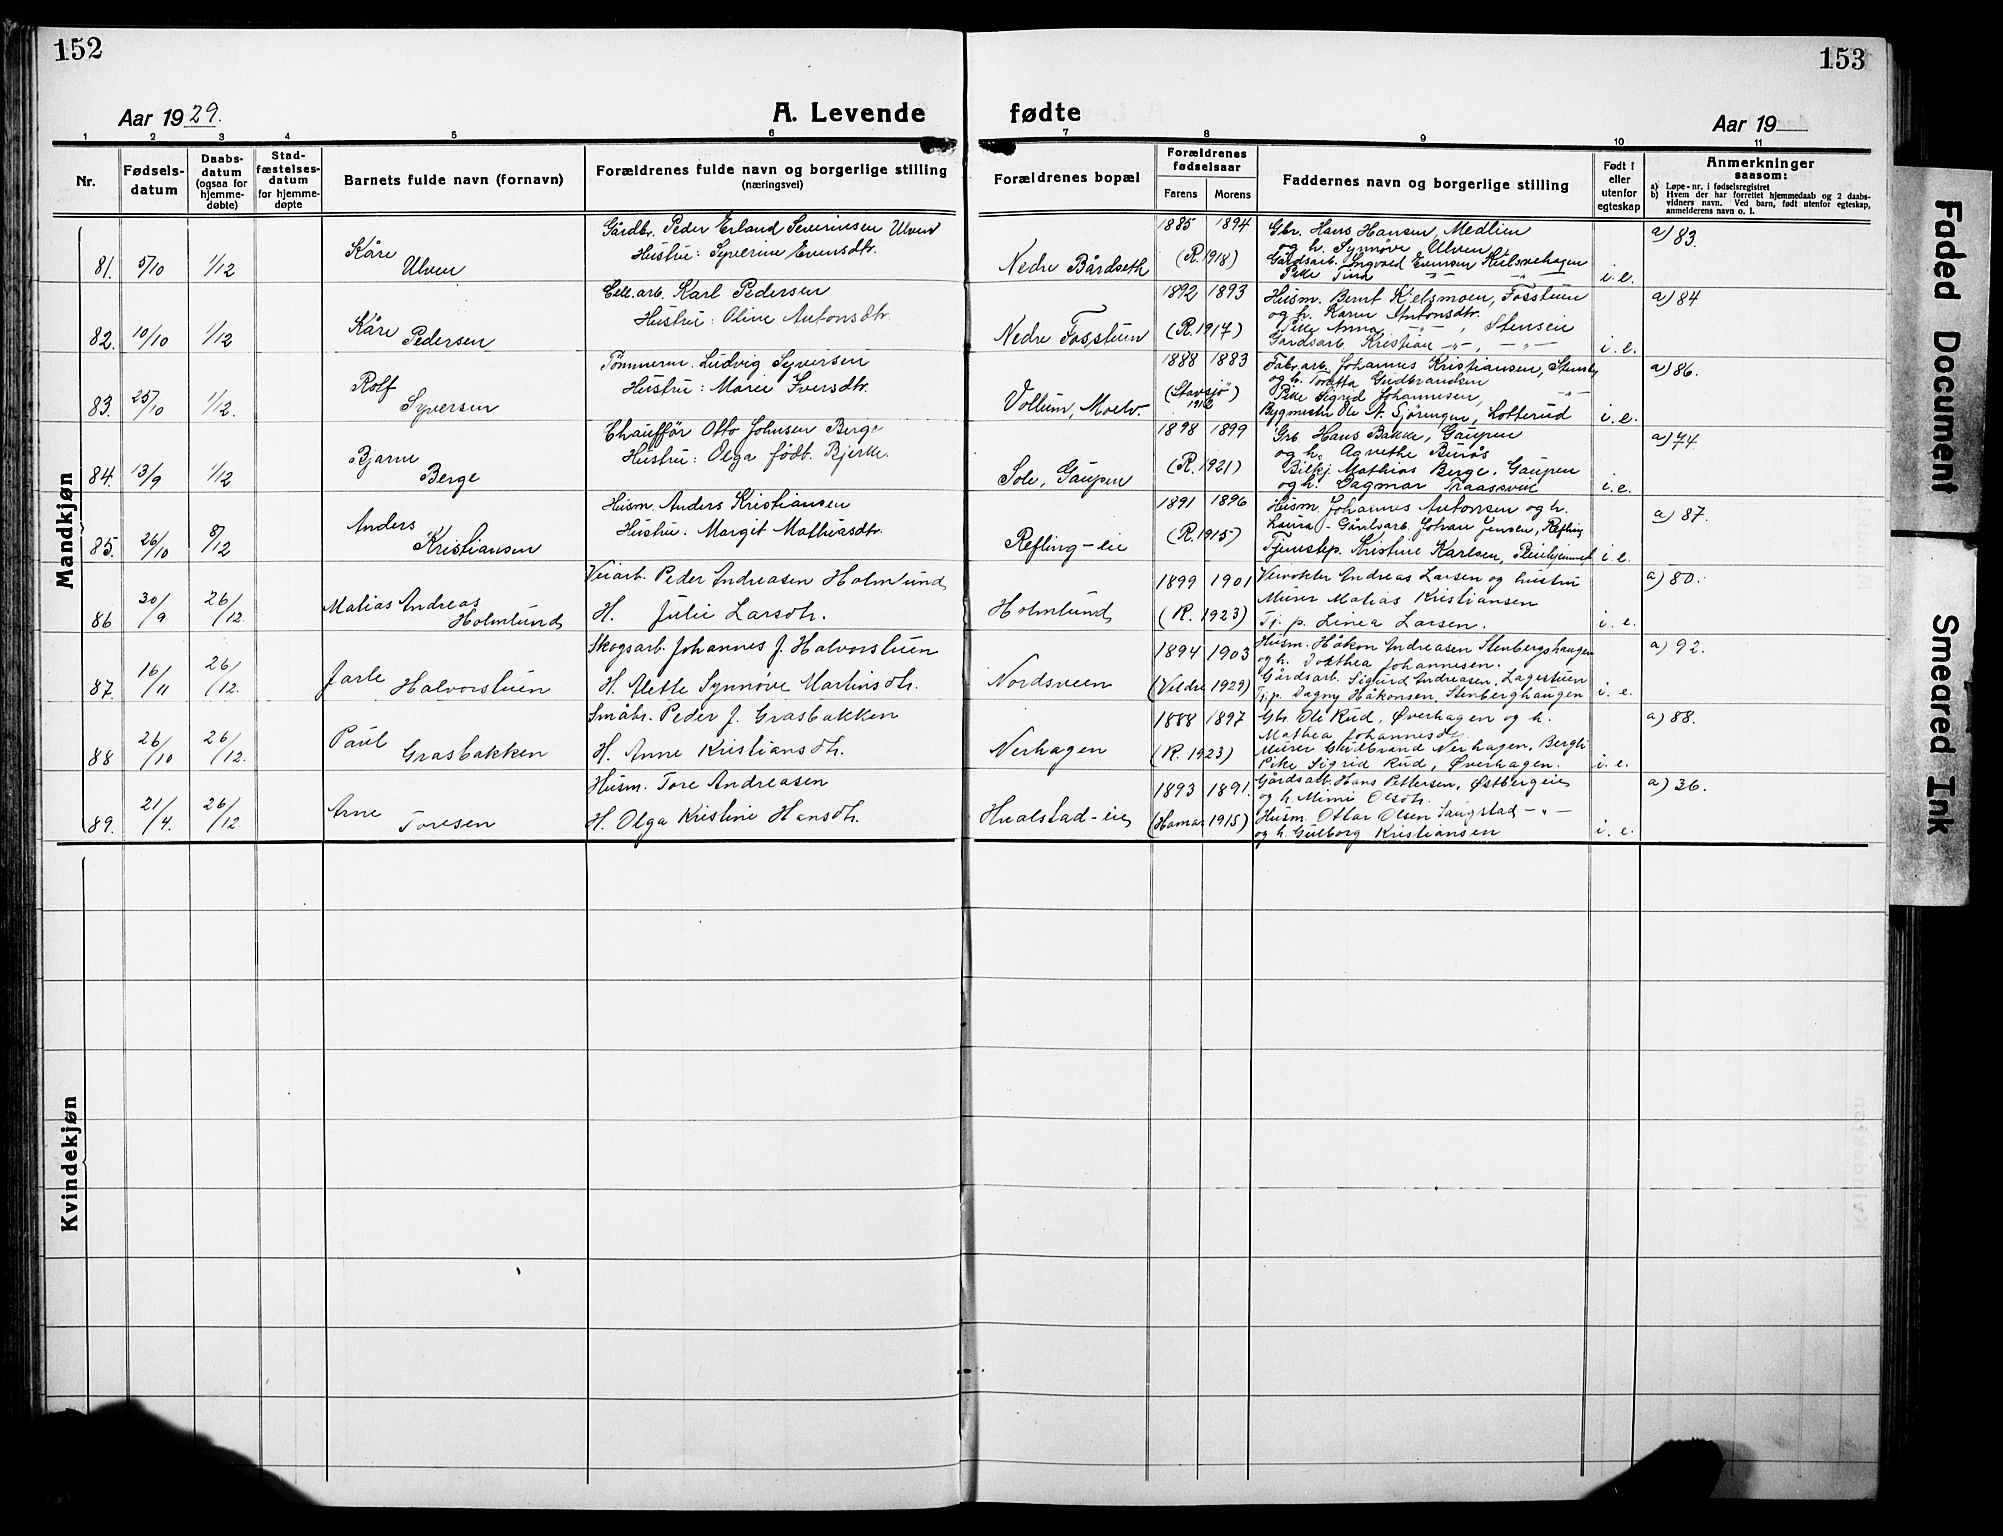 152
153
Aar 1929.
A. Levende
fødte
Aar 19
1 2 3 4 5 6 7 8 9 10 11
Nr.
Fødsels-
datum
Daabs-
datum
(ogsaa for
hjemme-
døbte)
Stad-
fæstelses-
datum
for hjemme-
døpte
Barnets fulde navn (fornavn)
Forældrenes fulde navn og borgerlige stilling
(næringsvei)
Forældrenes bopæl
Forældrenes
fødselsaar
Farens Morens
Faddernes navn og borgerlige stilling
Født i
eller
utenfor
egteskap
Anmerkninger
saasom:
a) Løpe-nr. i fødselsregistret
b) Hvem der har forrettet hjemmedaab og 2 daabs-
vidners navn. Ved barn, født utenfor egteskap,
anmelderens navn o. l.
Mandkjøn
81. 5/10 1/12 Kåre Ulven
Gårdbr. Peder Erland Severinsen Ulven
Hustru: Syverine Evensdtr.
Nedre Bårdseth
1885 1894
(R. 1918)
Gbr. Hans Hansen, Medlien
og h. Synnøve Ulven
Gårdsarb. Ingvald Evensen
Pike Tina
i. e.
a) 83.
82. 10/10 1/12 Kåre Pedersen
Cell. arb. Karl Pedersen
Hustru: Oline Antonsdtr.
Nedre Fosstuen
1892 1893
(R. 1917)
Husm. Bernt Kjelsmoen, Fosstuen
og h. Karen Antonsdtr.
Pike Anna -"-, Stensein
Gårdsarb. Kristian -"-, -"-
i. e.
a) 84
83. 25/10 1/12. Rolf Syversen
Tømmerm. Ludvig Syversen
Hustru: Marie Iversdtr.
Vollum, Moelv.
1888 1883
(Stavsjø)
1912
Fabr. arb. Johannes Kristiansen, Stensby
og h. Toretta Gudbrandsen
Pike Sigrid Johannesen, -"-
Bygmester Ole A. Sjøringen, Lotterud
i. e.
a) 86.
84. 13/9 1/12 Bjarne Berge
Chauffør Otto Johnsen Berge
Hustru: Olga født Bjerke.
Sole, Gaupen
1898 1899
(R. 1921)
Grb. Hans Bakke, Gaupen
og h. Agnethe Burås
Bilkj. Mathias Berge, Gaupen
og h. Dagmar Traasvik
i. e.
a) 74.
85. 26/10 8/12 Anders Kristiansen
Husm. Anders Kristiansen
Hustru. Margit Mathiasdtr.
Refling-eie
1891 1896
(R. 1915)
Husm. Johannes Antonsen og h.
Laura - Gårdsarb. Johan Jensen, Refling
Tjenestep. Kristine Karlsen, Pleiehjemmet
i. e.
a) 87.
86 30/9 26/12. Matias Andreas Holmlund
Veiarb. Peder Andreasen Holmlund
H. Julie Larsdtr.
Holmlund
1899 1901
(R. 1923)
Veivokter Andreas Larsen og hustru
Murer Matias Kristiansen
Tj. p. Linea Larsen.
i. e.
a) 80.
87. 16/11 26/12. Jarle Halvorstuen
Skogsarb. Johannes J. Halvorstuen
H. Alette Synnøve Martinsdtr.
Nordsveen
1894 1903
(Veldre 1929)
Husm. Håkon Andreasen Stenbergshaugen
og h. Dorthea Johannesen.
Gårdsarb. Sigurd Andreasen, Lagestuen
Tj. p. Dagny Håkonsen, Stenberghaugen
i. e.
a) 92.
88 26/10 26/12. Paul Grasbakken
Småbr. Peder J. Grasbakken
H. Anne Kristiansdtr.
Nerhagen
1888 1897
(R. 1923)
Gbr. Ole Rud, Øverhagen og h.
Mathea Johannesdtr.
Murer Gudbrand Nerhagen, Bergli
Pike Sigrid Rud, Øverhagen.
i. e.
a) 88.
89. 21/4. 26/12. Arne Toresen
Husm. Tore Andreasen
H. Olga Kristine Hansdtr.
Hvalstad-eie
1893 1891.
(Hamar 1915)
Gårdsarb. Hans Pettersen, Østbergeie
og h. Mimi Olsdtr.
Husm. Ottar Olsen Saugstad -"-
og h. Gulborg Kristiansen
i. e.
a) 36.
Kvindekjøn
Faded Document
Smeared Ink